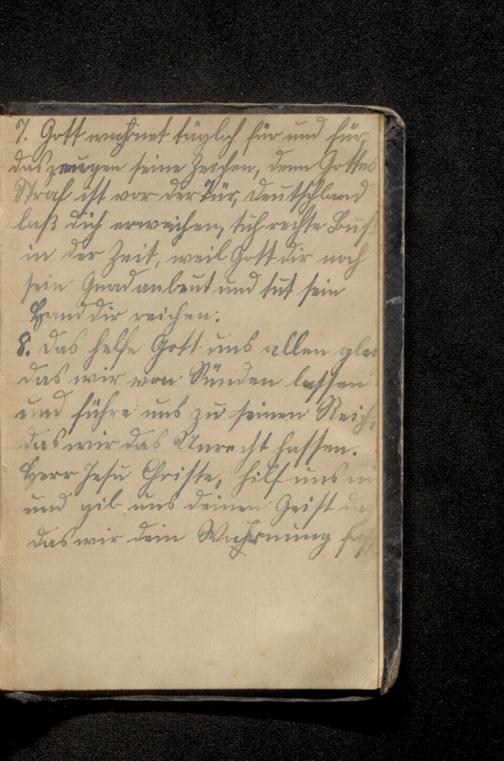 7. Gott warnet täglich für und für,
das zeugen seine Zeichen, denn Gottes
Straf ist vor der Tür, Deutschland
laß dich erweichen, tuh rechte Buß
in der Zeit, weil Gott dir noch
sein Gnad anbeut und tut sein
Hand dir reichen.
8. Das helfe Gott uns allen glei
das wir von Sünden lassen
und führe uns zu seinen Reich,
das wir das Unrecht hassen.
Herr Jesu Christe, hilf uns
und gib uns deinen Geist
das wir dein Wahrnung